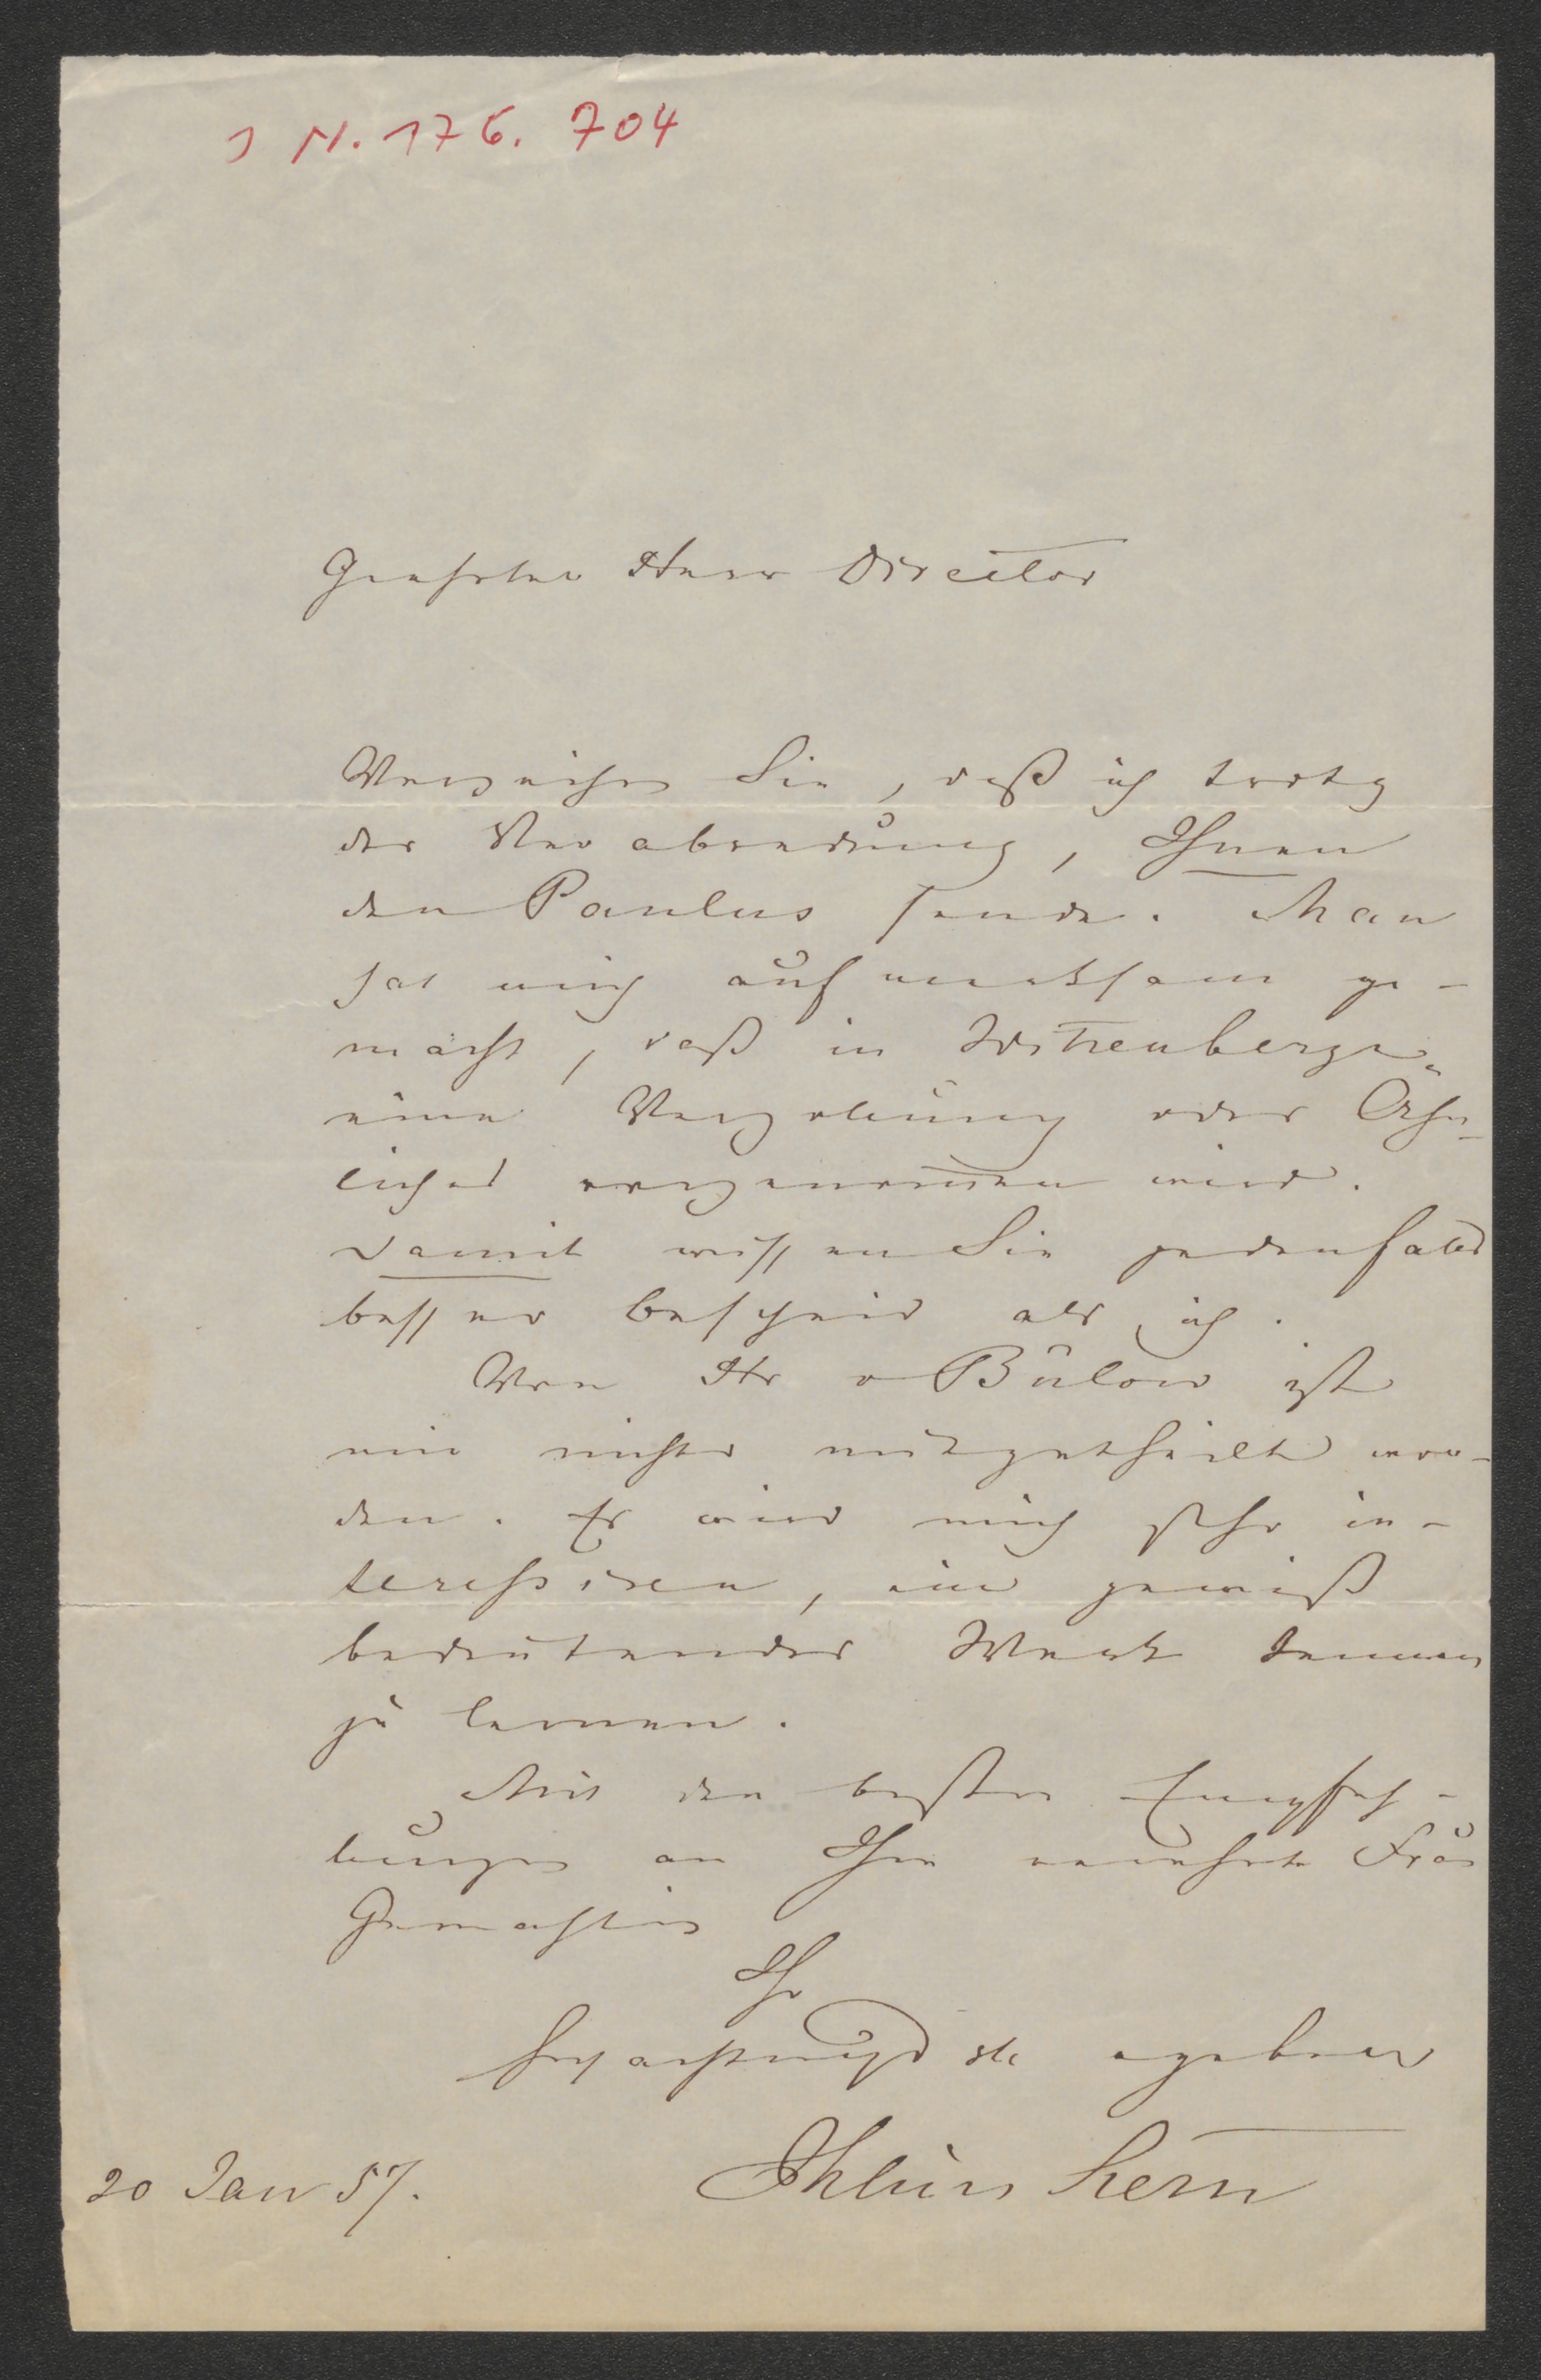 J N. 176. 704
Geehrter Herr Director
Verzeihen Sie, daß ich trotz
der Verabredung, Ihnen
den Paulus sende. Man
hat mich aufmerksam ge-
macht, daß in Wittenberge
eine Verzollung oder Aehn-
liches vorgenommen wird.
Damit wissen Sie jedenfalls
besser bescheid als ich.
Von Hr v Bülow ist
mir nichts mitgetheilt wor-
den. Es wird mich sehr in-
teressiren, ein gewiß
bedeutendes Werk kennen
zu lernen.
Mit den besten Empfeh-
lungen an Ihre verehrte Frau
Gemahlin
Ihr
hochachtungsvollst ergebener
Julius Stern
20 Jan 57.